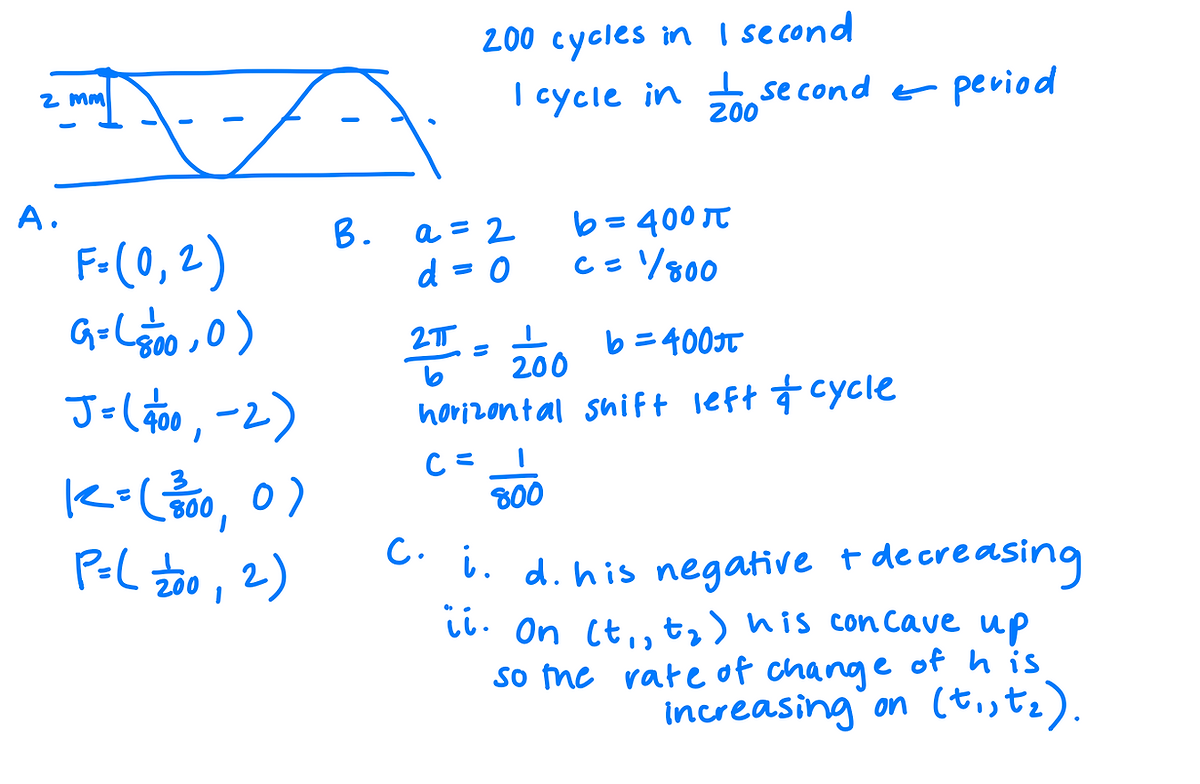 200 cycles in 1 second
1 cycle in 1/200 second ← period
2 mm
A.
F=(0, 2)
G=(1/800, 0)
J=(1/400, -2)
K=(3/800, 0)
P=(1/200, 2)
B. a = 2 b = 400π
d = 0 c = 1/800
2π/b = 1/200 b = 400π
horizontal shift left 1/4 cycle
c = 1/800
C. i. d. h is negative + decreasing
ii. On (t₁, t₂) h is concave up
so the rate of change of h is
increasing on (t₁, t₂).